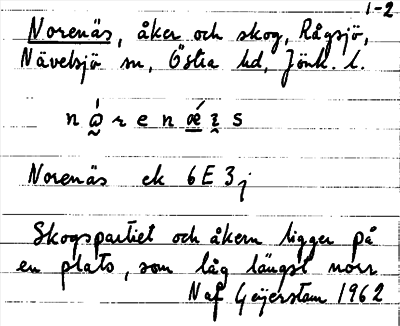 1-2
Norenäs, åker och skog, Rågsjö,
Nävelsjö sn, Östra hd, Jönk. l.
Norenäs ek 6E3j
Skogspartiet och åkern ligger på
en plats, som låg längst norr
Naf Geijerstam 1962